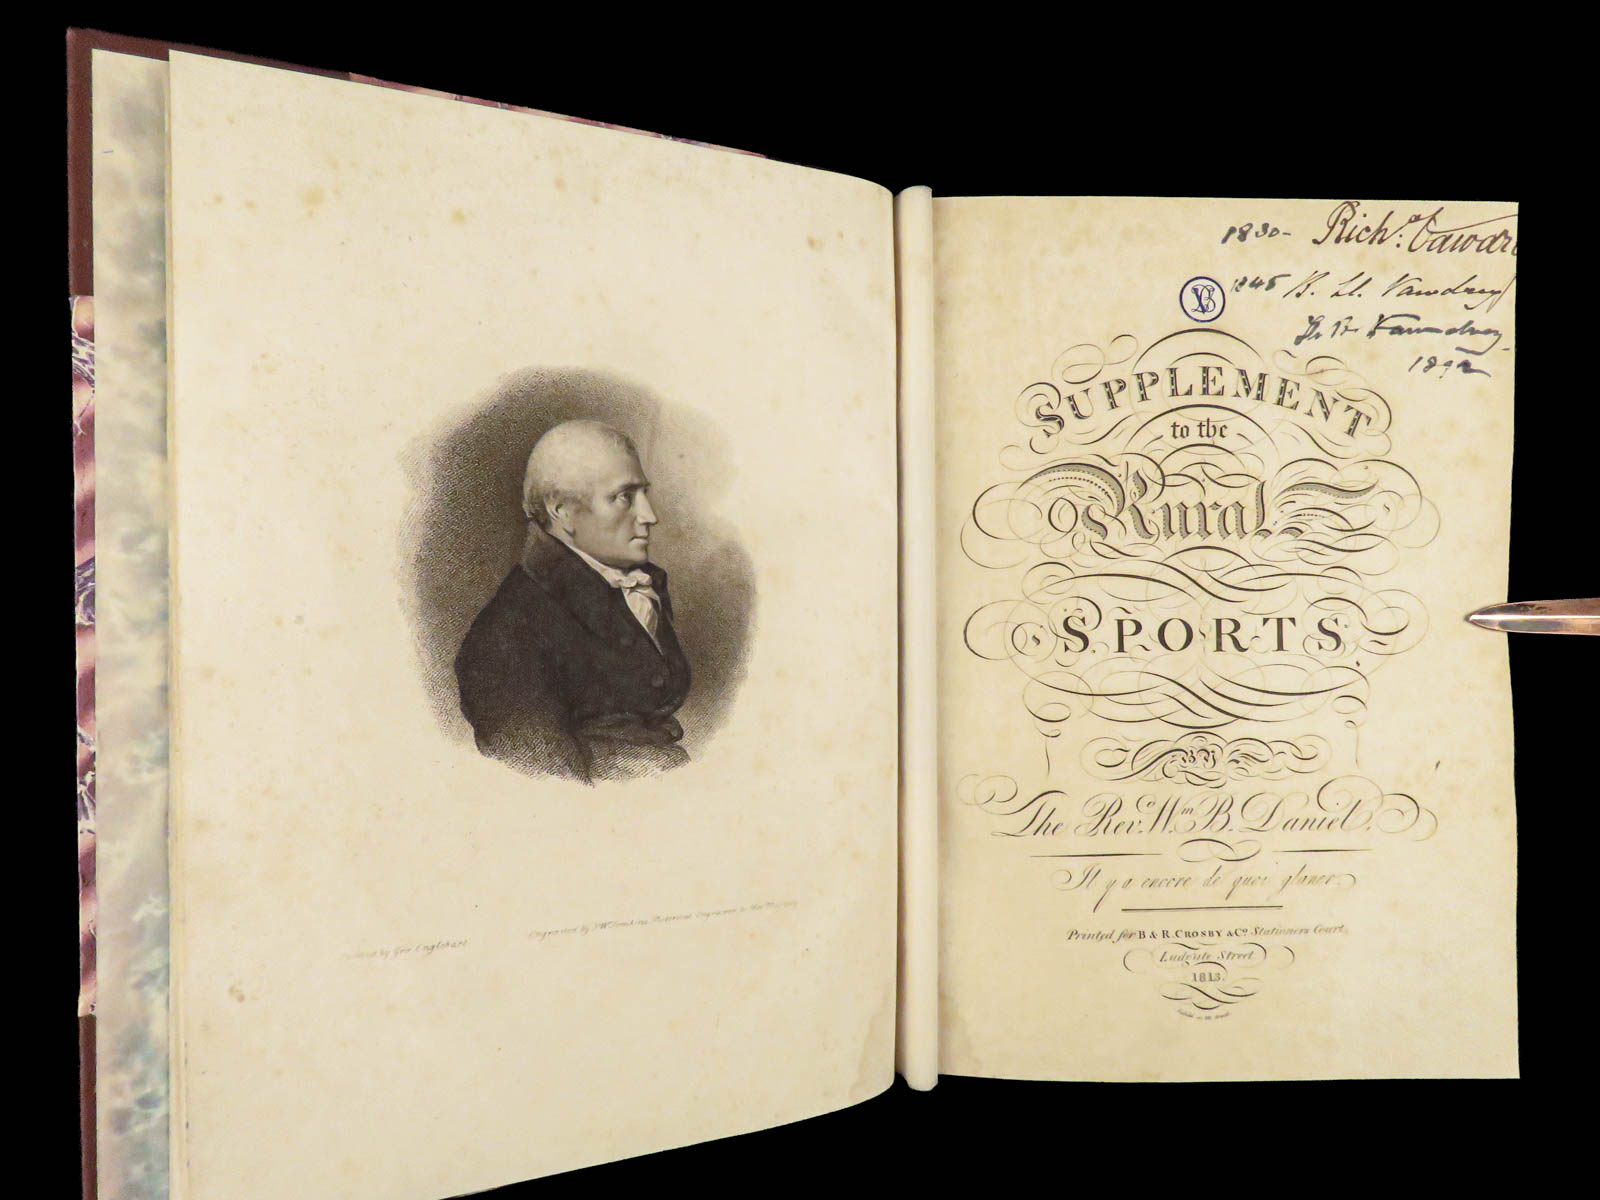 Painted by Geo. Englehart
Engraved by P. W. Tomkins Historical Engraver to Her Majesty
1830- Richd.
1845 B. Ll. Vawdrey
Vawdrey
SUPPLEMENT
to the
Rural
SPORTS
BY
The Revd. Wm. B. Daniel.
Il y a encore de quoi glaner.
Printed for B & R. CROSBY & Co. Stationers Court
Ludgate Street
1813.